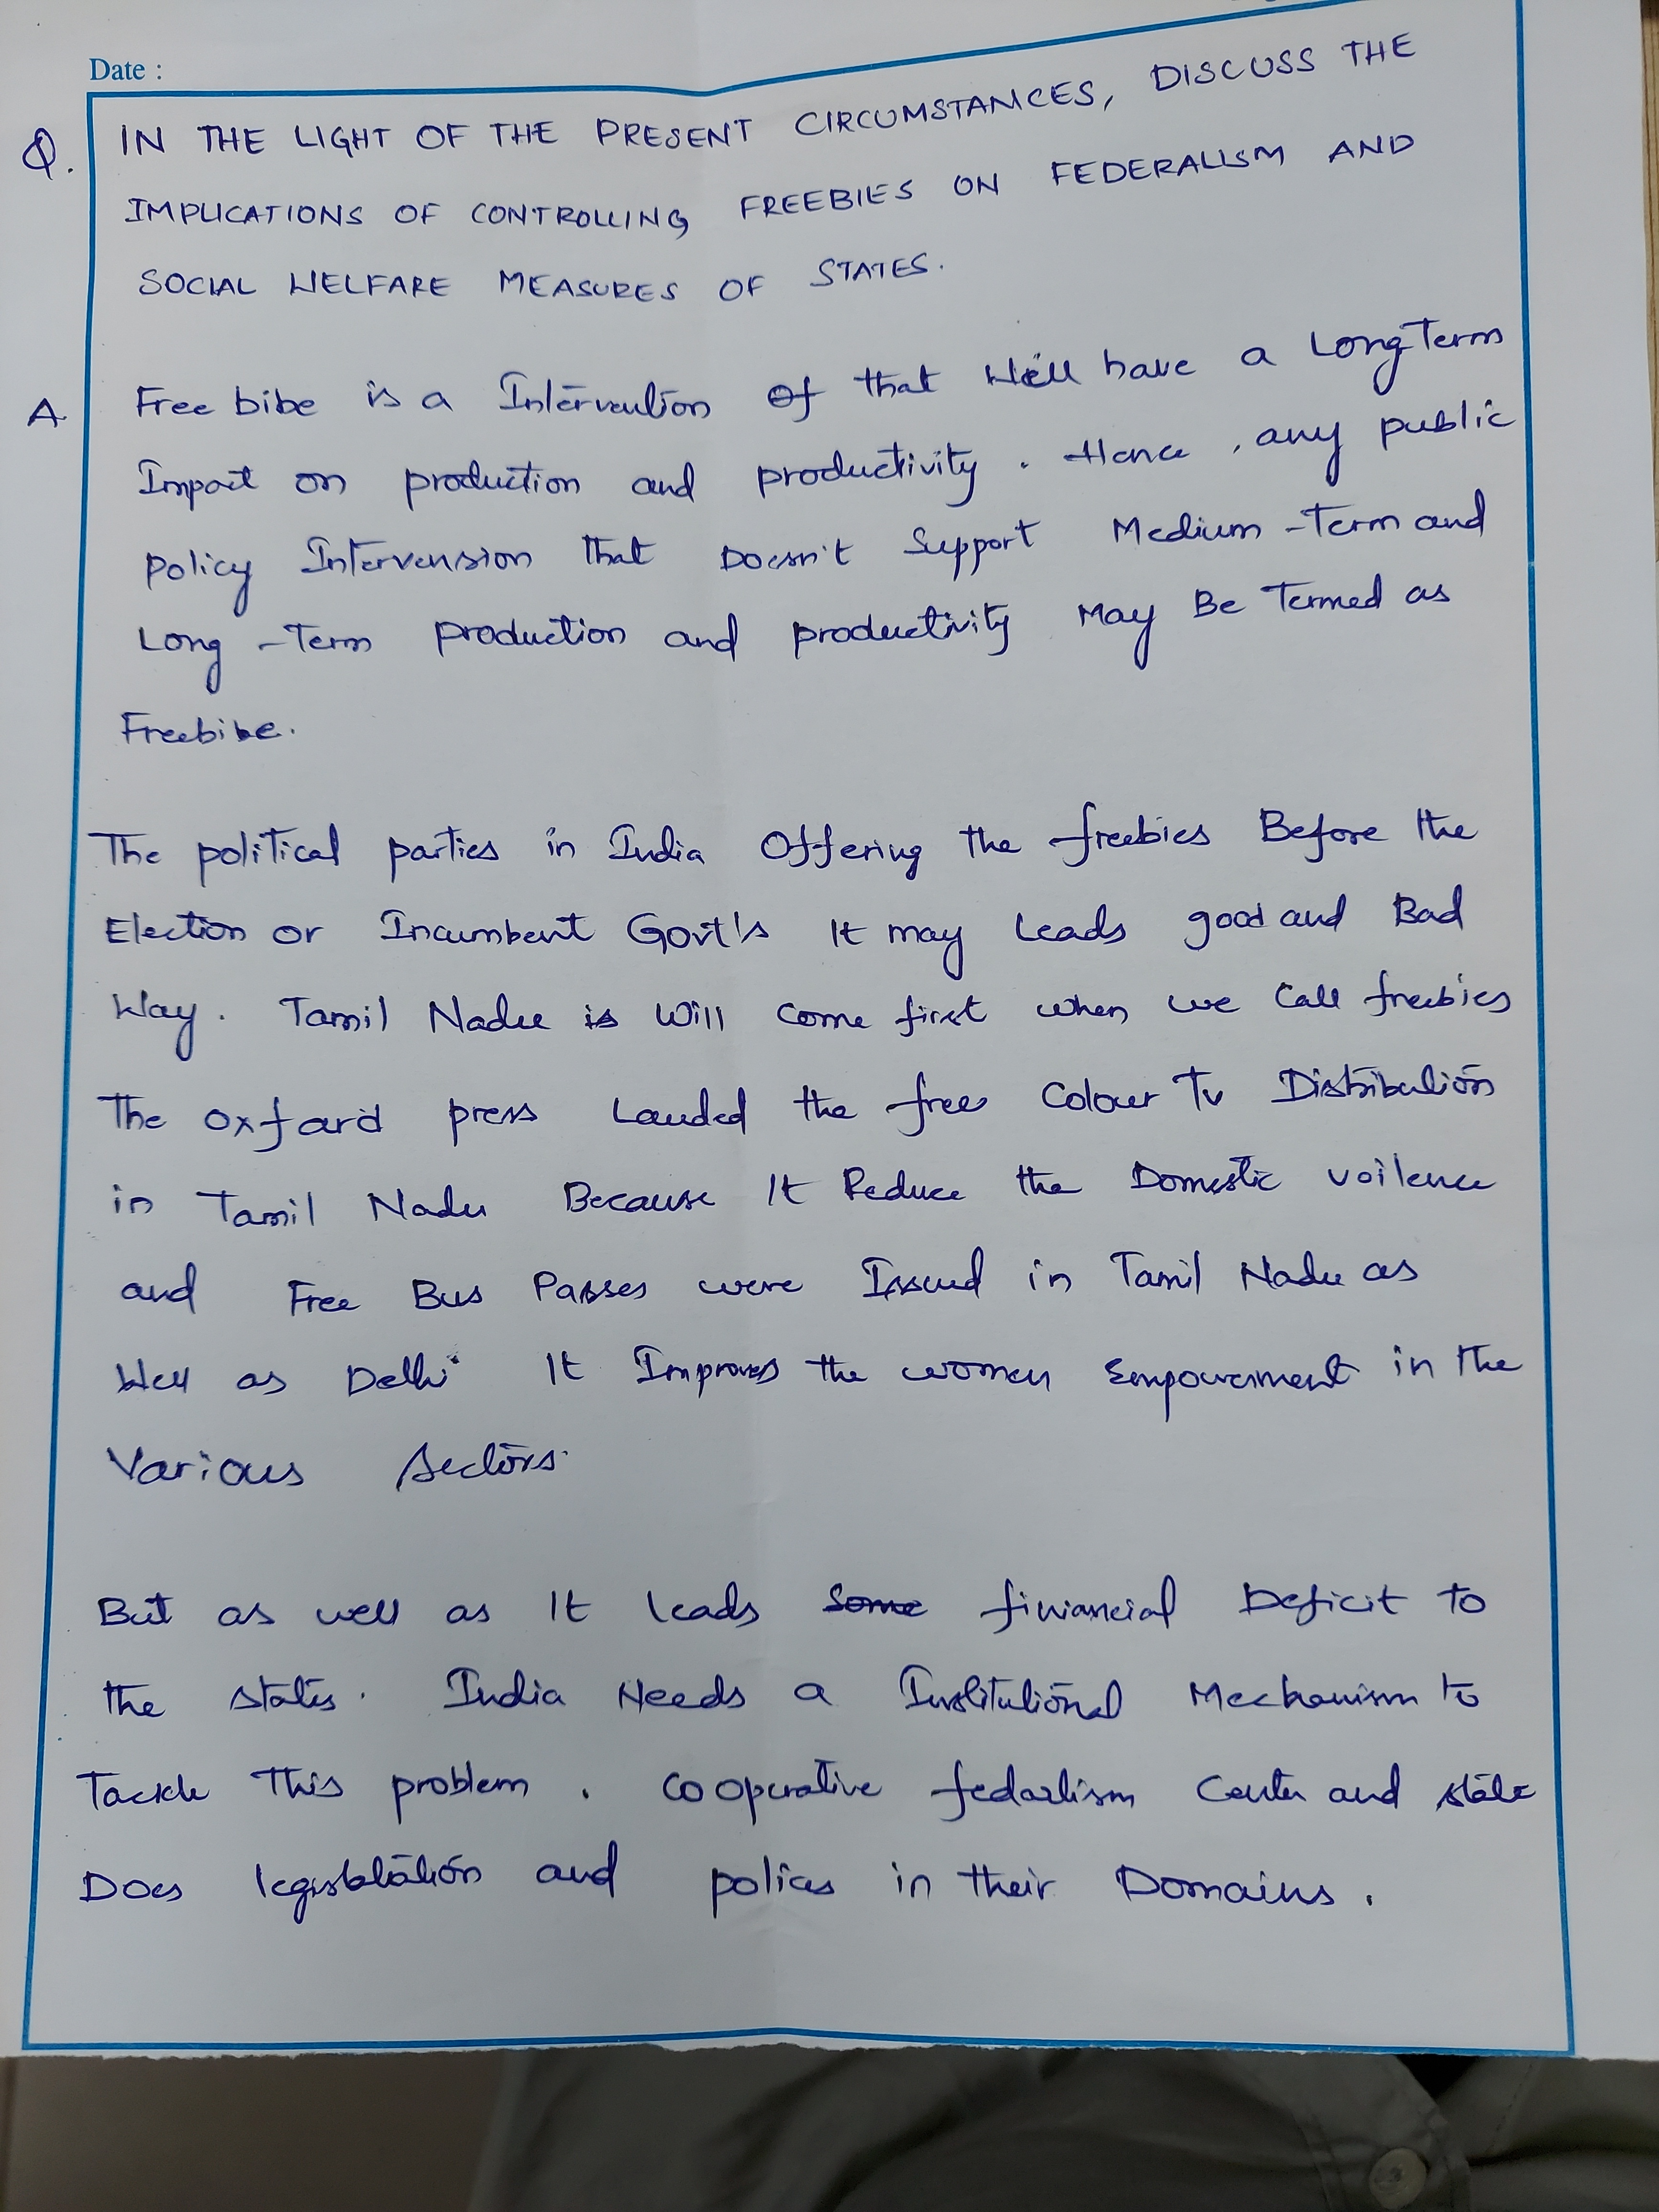 Date :
Q. IN THE LIGHT OF THE PRESENT CIRCUMSTANCES, DISCUSS THE
IMPLICATIONS OF CONTROLLING FREEBIES ON FEDERALISM AND
SOCIAL WELFARE MEASURES OF STATES.
A. Free bibe is a Intervention of that Will have a Long Term
Impact on production and productivity. Hence, any public
policy Intervension that Doesn't Support Medium-Term and
Long-Term production and productivity May Be Termed as
Freebibe.
The political parties in India Offering the freebies Before the
Election or Incumbent Govt's It may leads good and Bad
Way. Tamil Nadu is Will come first when we Call freebies
The oxford press Lauded the free Colour Tv Distribution
in Tamil Nadu Because It Reduce the Domestic voilence
and Free Bus Passes were Issued in Tamil Nadu as
Well as Delhi. It Improves the women Empowerment in the
Various Sectors.
But as well as It leads some financial Deficit to
the states. India Needs a Institutional Mechanism to
Tackle This problem. Cooperative fedarlism Center and state
Does legisblation and polices in their Domains.